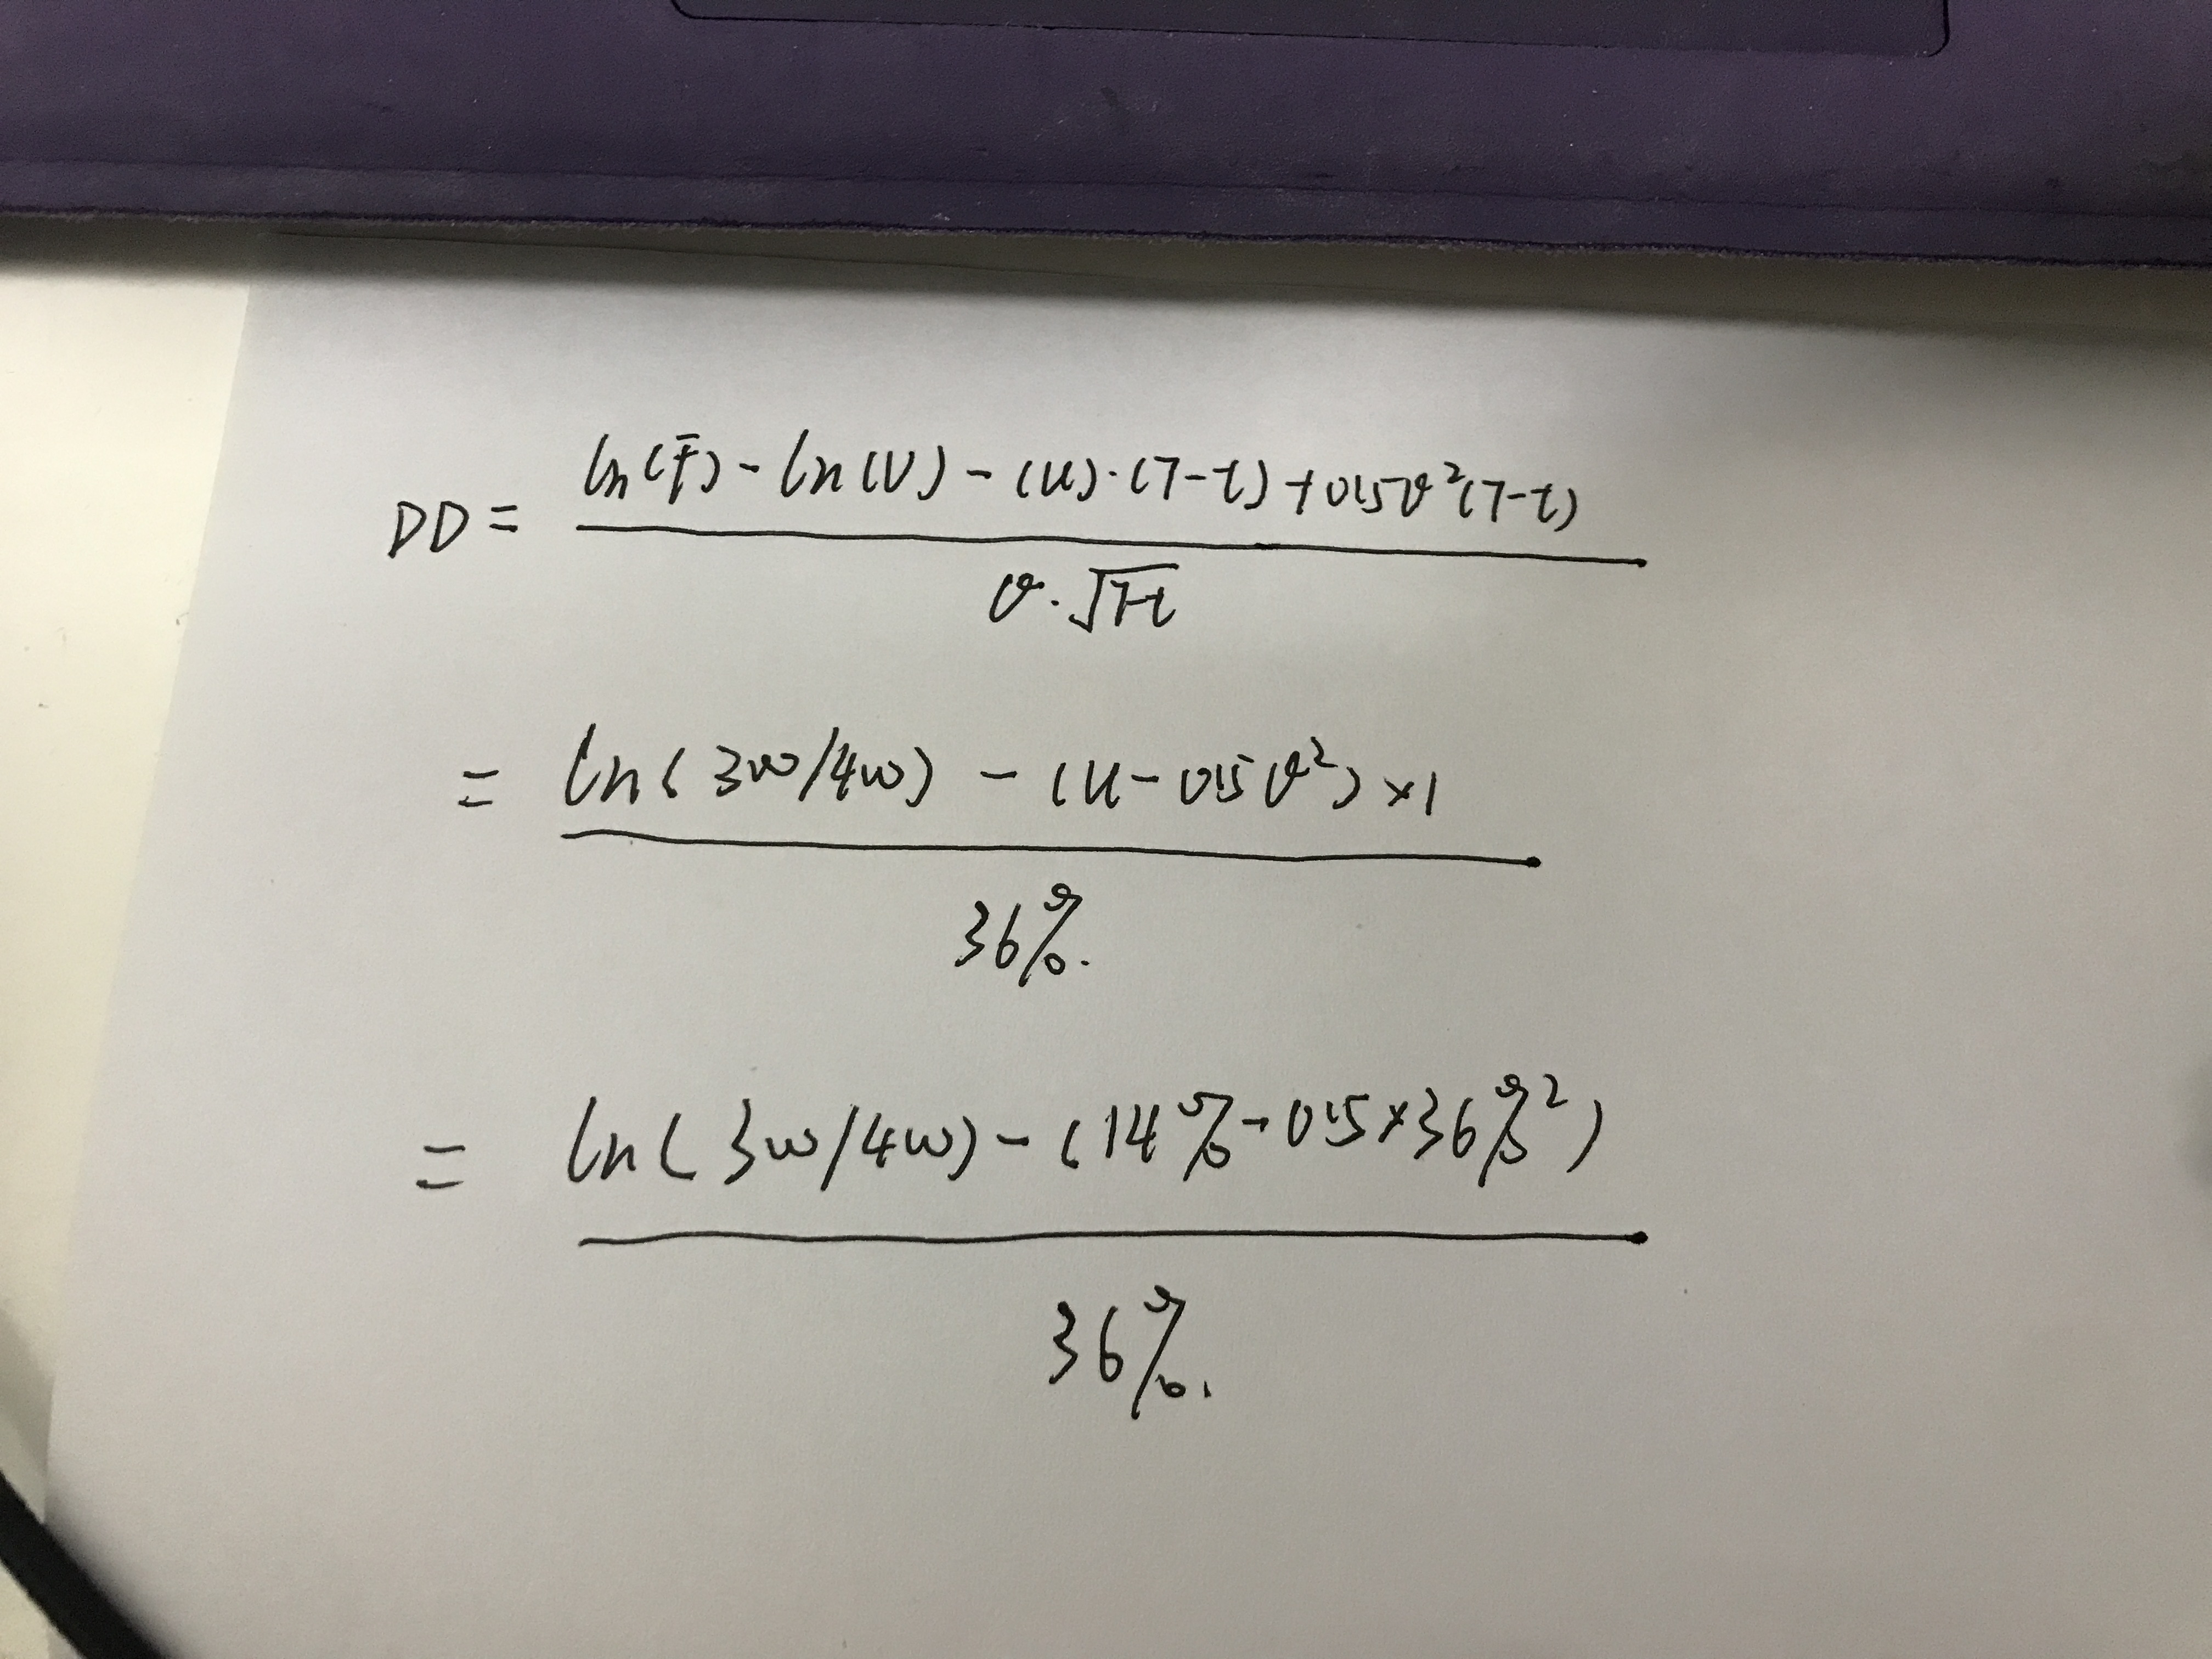 DD = ln(F) - ln(V) - (u)·(T-t) + 0.5σ²(T-t)
σ·√T-t
= ln(300/400) - (u - 0.5σ²) × 1
36%.
= ln(300/400) - (14% - 0.5×36%²)
36%.